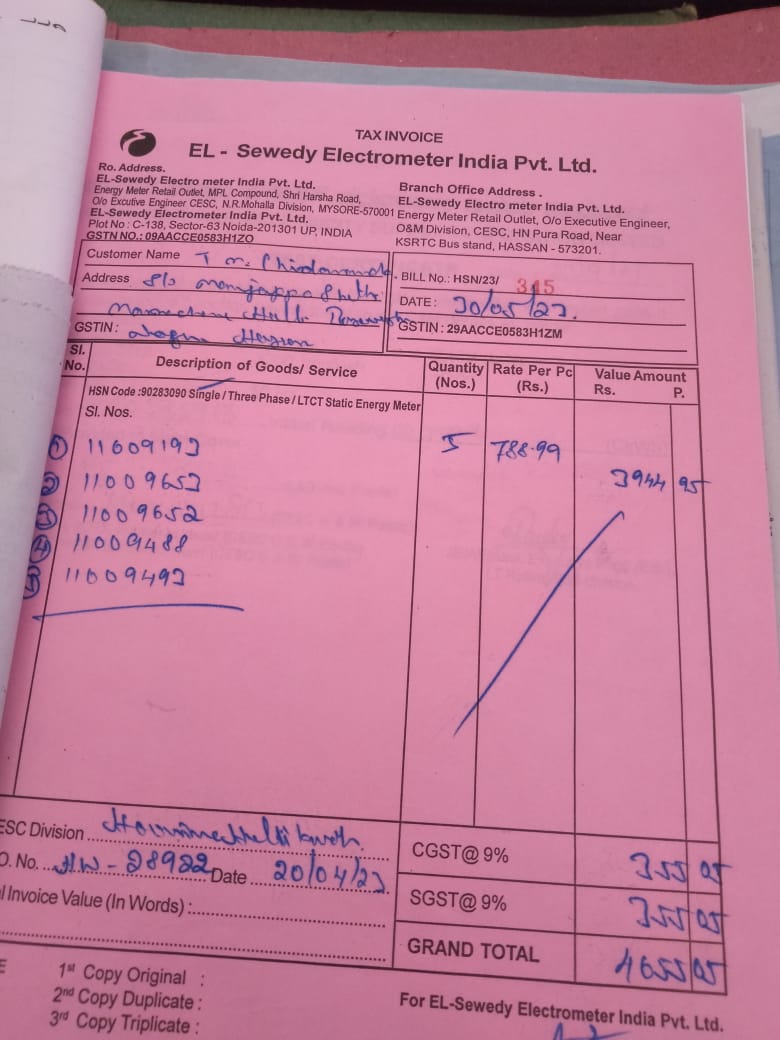 TAX INVOICE
EL - Sewedy Electrometer India Pvt. Ltd.
Ro. Address.
EL-Sewedy Electro meter India Pvt. Ltd.
Energy Meter Retail Outlet, MPL Compound, Shri Harsha Road,
O/o Excutive Engineer CESC, N.R.Mohalla Division, MYSORE-570001
EL-Sewedy Electrometer India Pvt. Ltd.
Plot No : C-138, Sector-63 Noida-201301 UP, INDIA
GSTN NO.: 09AACCE0583H1ZO
Branch Office Address .
EL-Sewedy Electro meter India Pvt. Ltd.
Energy Meter Retail Outlet, O/o Executive Engineer,
O&M Division, CESC, HN Pura Road, Near
KSRTC Bus stand, HASSAN - 573201.
Customer Name T
Address S/o
GSTIN :
BILL No.: HSN/23/ 345
DATE : 30/05/23.
GSTIN : 29AACCE0583H1ZM
Sl. No. Description of Goods/ Service Quantity (Nos.) Rate Per Pc (Rs.) Value Amount Rs. P.
HSN Code :90283090 Single / Three Phase / LTCT Static Energy Meter
Sl. Nos.
1 11009193 5 788.99
3944 95
2 11009653
3 11009652
4 11009488
5 11009493
ESC Division
O. No. 28982 Date 20/04/23
l Invoice Value (In Words) :
CGST@ 9% 355 05
SGST@ 9% 355 05
GRAND TOTAL 4655 05
E 1st Copy Original :
2nd Copy Duplicate :
3rd Copy Triplicate :
For EL-Sewedy Electrometer India Pvt. Ltd.